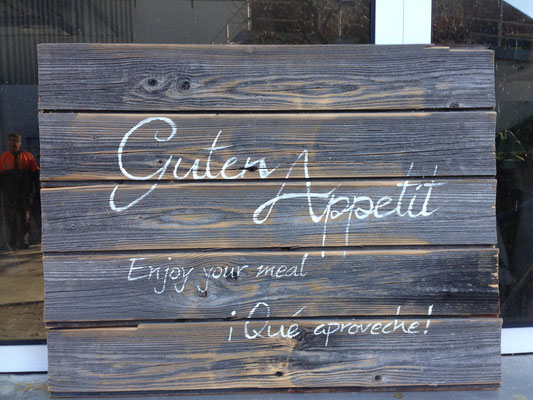 Guten
Appetit
Enjoy your meal
¡Qué aproveche!